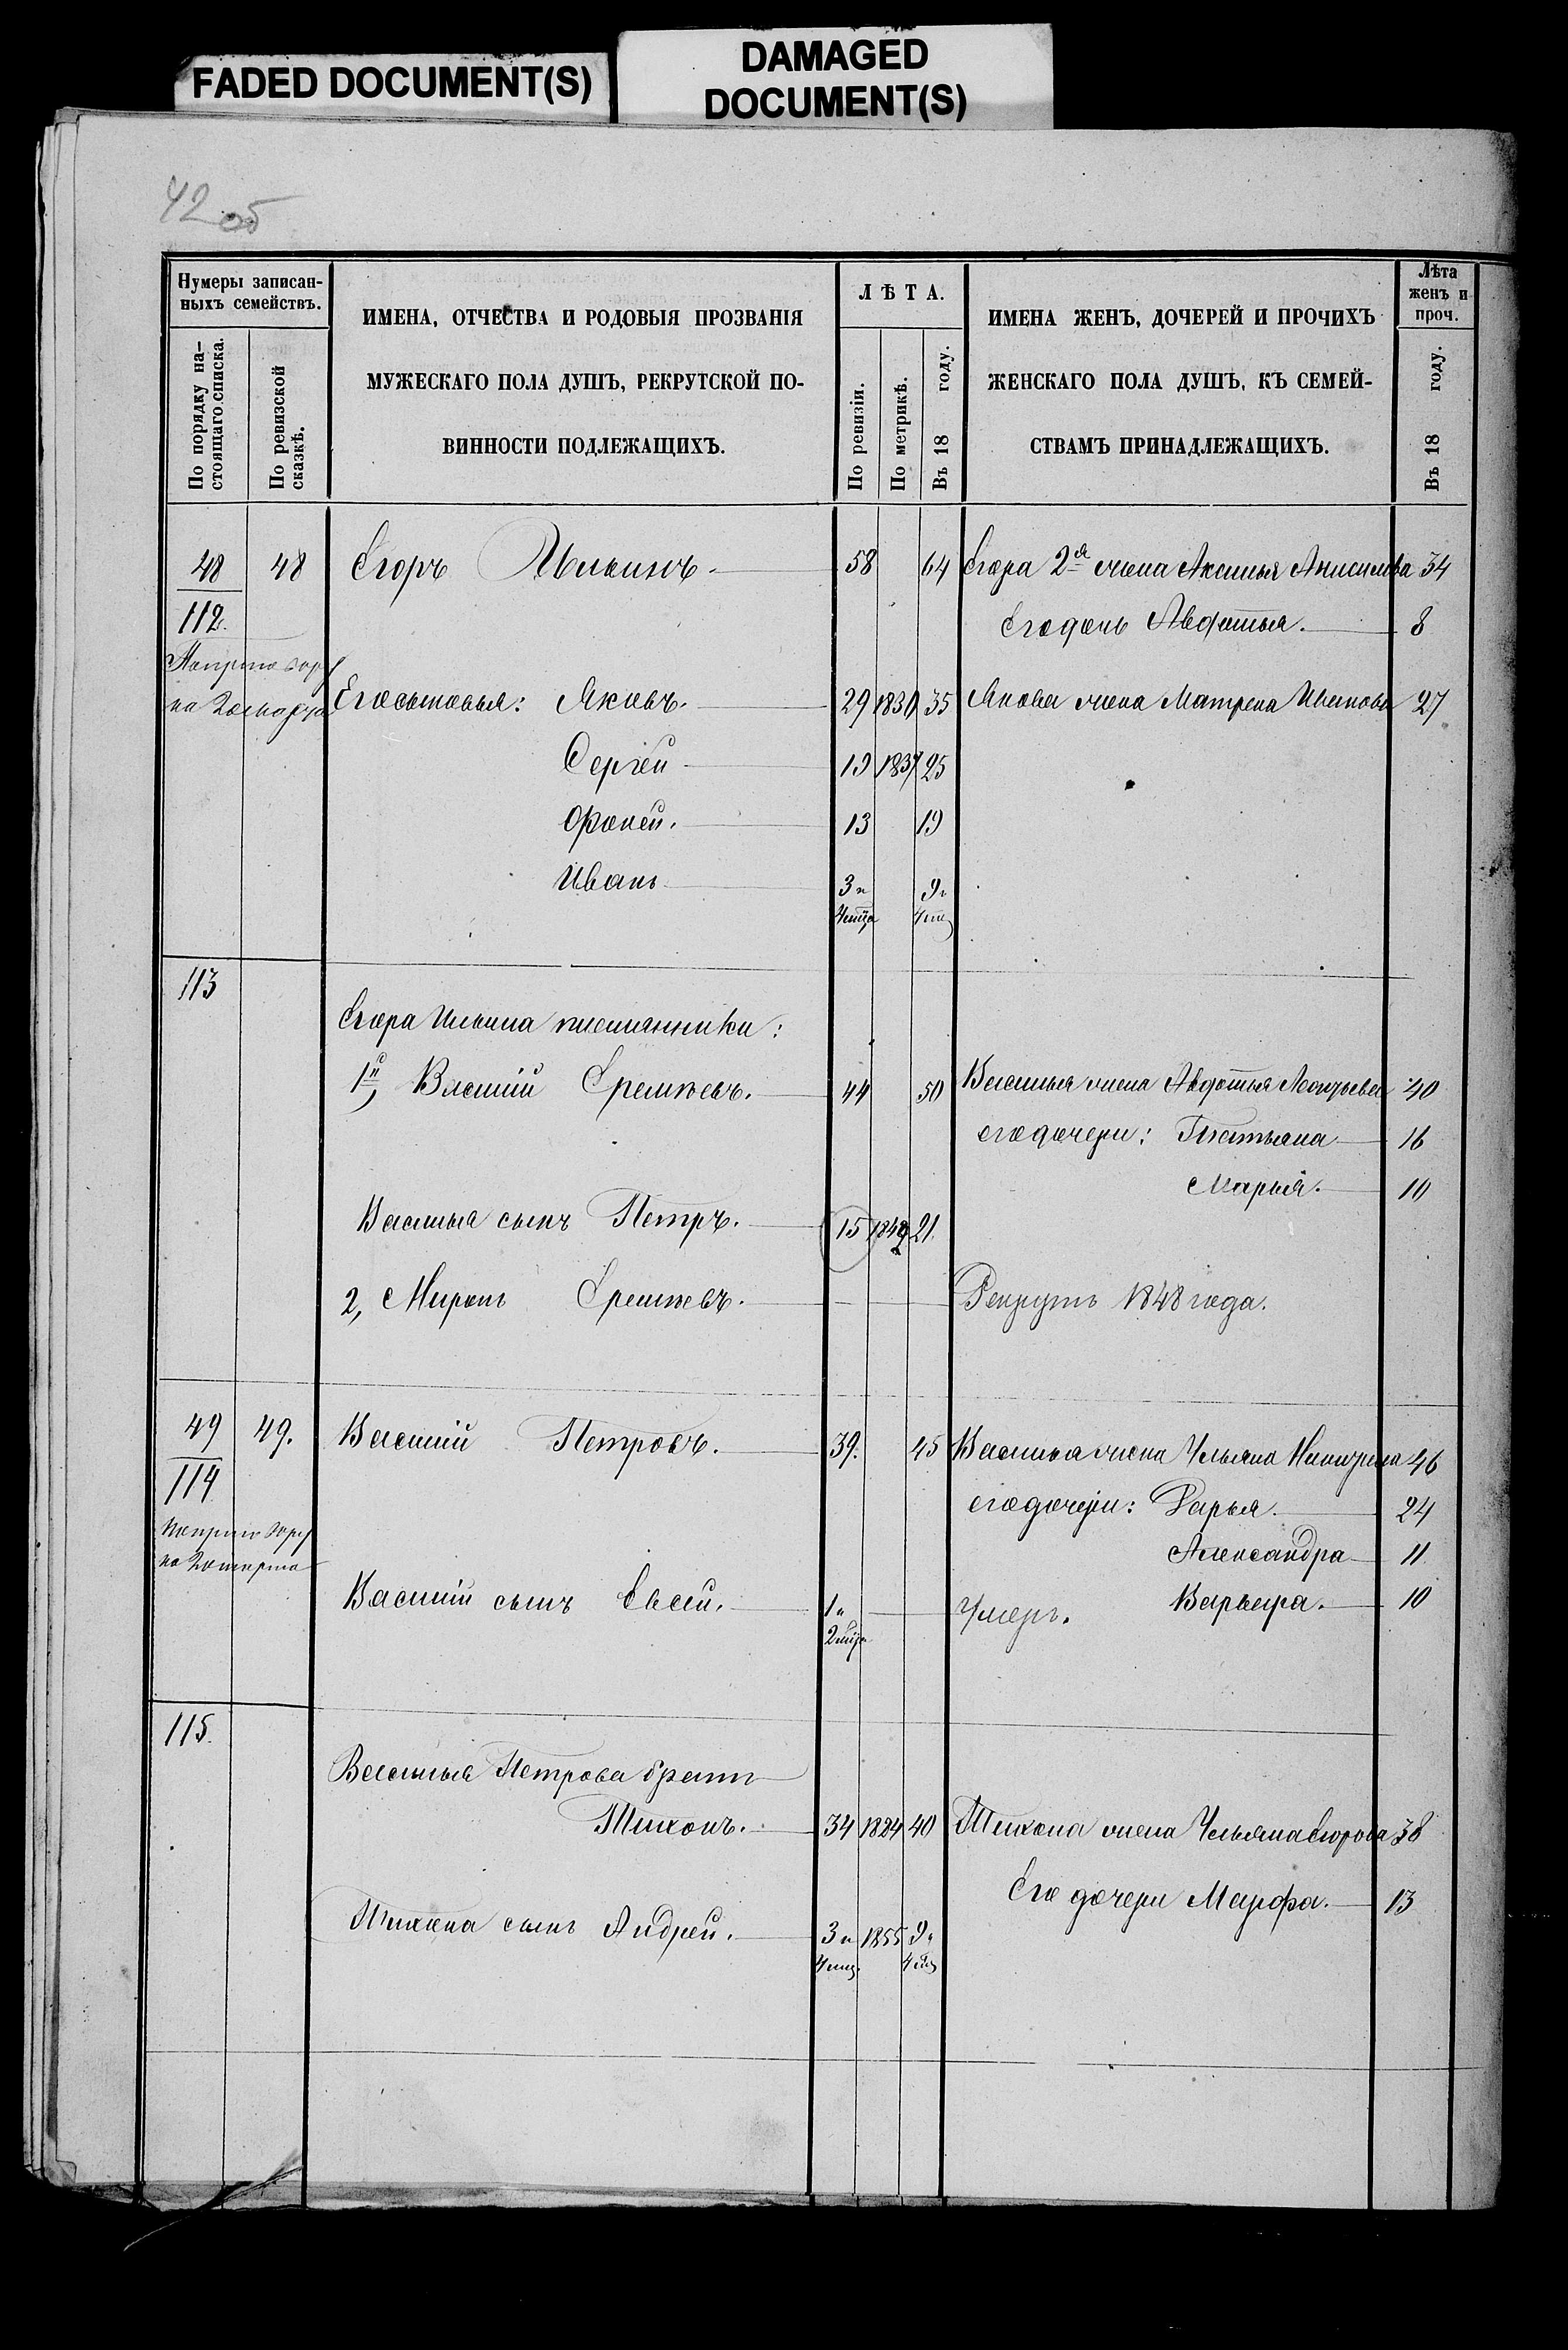 FADED DOCUMENT(S)
DAMAGED
DOCUMENT(S)
42 об
Нумеры записан-
ныхъ семействъ.
По порядку на-
стоящаго списка.
По ревизской
сказкѣ.
ИМЕНА, ОТЧЕСТВА И РОДОВЫЯ ПРОЗВАНІЯ
МУЖЕСКАГО ПОЛА ДУШЪ, РЕКРУТСКОЙ ПО-
ВИННОСТИ ПОДЛЕЖАЩИХЪ.
ЛѢТА.
По ревизіи.
По метрикѣ.
Въ 18 году.
ИМЕНА ЖЕНЪ, ДОЧЕРЕЙ И ПРОЧИХЪ
ЖЕНСКАГО ПОЛА ДУШЪ, КЪ СЕМЕЙ-
СТВАМЪ ПРИНАДЛЕЖАЩИХЪ.
Лѣта
женъ и
проч.
Въ 18 году.
48 48 Егоръ Ильинъ. 58 64 Егора 2я жена Аксинья Анисимова 34
112. Его дочь Авдотья. 8
Его сыновья: Яковъ. 29 1830 35 Якова жена Матрена Иванова 27
Сергѣй 19 1837 25
Фокей. 13 19
Иванъ 3 и 9 и
4 мца 4 мц
113
Егора Ильина племянники:
1й, Василій Еремѣевъ. 44 50 Василья жена Авдотья 40
его дочери: Татьяна 16
Марья. 10
Василья сынъ Петръ. 15 21.
2, Миронъ Еремѣевъ. Рекрутъ 1848 года.
49 49. Василій Петровъ. 39. 45 Василья жена Ульяна 46
114 его дочери: Дарья. 24
Александра 11
Василія сынъ Евсей. 1 и Умеръ. Варвара. 10
2 мца
115.
Василья Петрова братъ
Тихонъ. 34 1824 40 Тихона жена Ульяна Егорова 38
Его дочери Марфа. 13
Тихона сынъ Андрей. 3 и 1855 9 и
4 мц. 4 мц